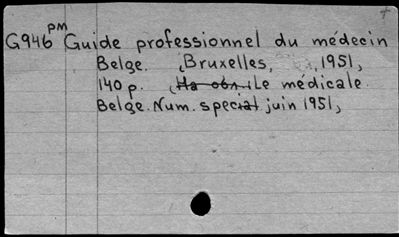 PM
G946 Guide professionnel du médecin
Belge. Bruxelles, 1951,
140 p. На обл.: Le médicale
Belge. Num. special juin 1951,